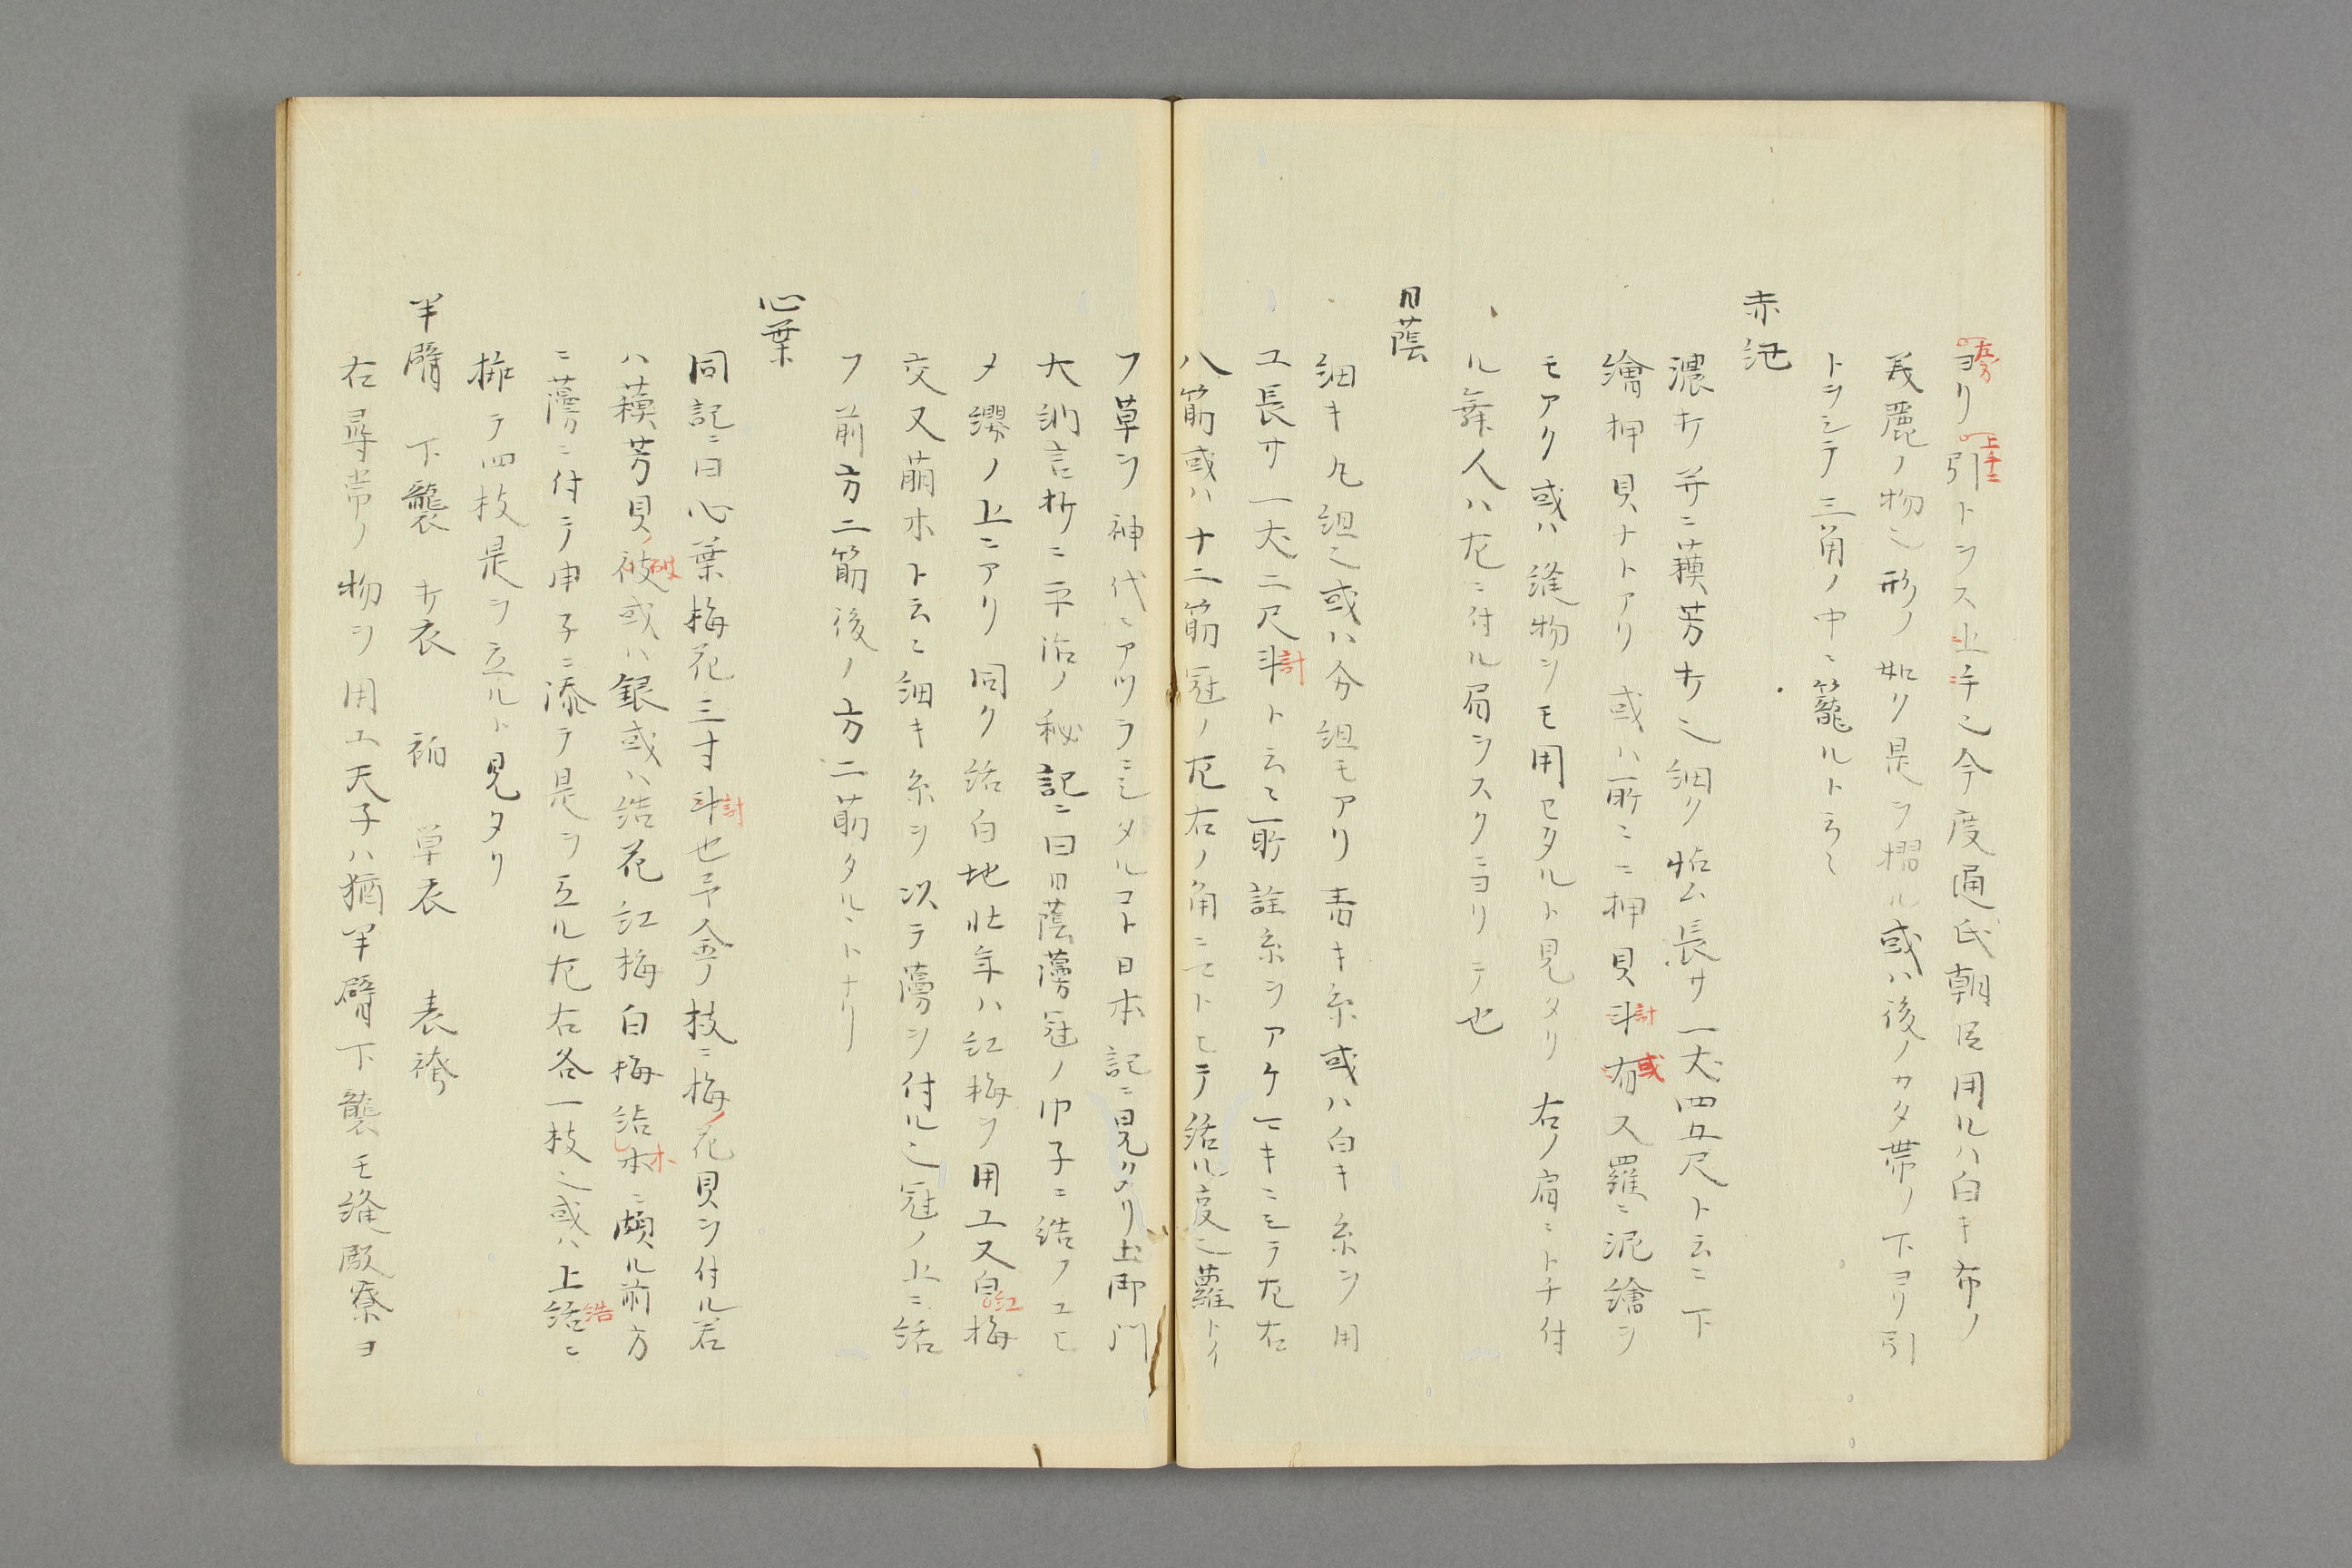 ヨリ引トヲス上手也今度通氏朝臣用ルハ白キ布ノ
左方
上手ニ
美麗ノ物也形ノ如ク是ヲ摺ル或ハ後ノカタ帯ノ下ヨリ引
トヲシテ三角ノ中ニ籠ルト云々
赤紐
濃打并ニ蘓芳打也細ク帖ム長サ一丈四五尺ト云ニ下
繪押貝ナトアリ或ハ一所ニ二押貝斗有又羅ニ泥繪ヲ
計
或
モアク或ハ縫物ヲモ用セタルト見タリ右ノ肩ニトチ付
ル舞人ハ左ニ付ル肩ヲスクニヨリテ也
日蔭
細キ丸組也或ハ分組モアリ青キ糸或ハ白キ糸ヲ用
ユ長サ一丈二尺斗ト云々一所註糸ヲアケマキニシテ左右
計
八筋或ハ十二筋冠ノ左右ノ角ニモトヒテ結ル是也蘿トイ
フ草ヲ神代ニアツラニシタルコト日本記ニ見ヘタリ土御門
大納言抄ニ平治ノ秘記ニ曰日蔭蘰冠ノ巾子ニ結フユヒ
メ纓ノ上ニアリ同ク結白地壮年ハ紅梅ヲ用ユ又白梅
紅
交又萠木ト云々細キ糸ヲ以テ蘰ヲ付ル也冠ノ上ニ結
フ前方二筋後ノ方二筋タルヽトナリ
心葉
同記ニ曰心葉梅花三寸斗也予金ノ枝ニ梅ノ花貝ヲ付ル若
計
ハ蘓芳貝ノ被或ハ銀或ハ結花紅梅白梅結木ニ頗ル前方
破
木
ニ蘰ニ付テ巾子ニ添テ是ヲ立ル左右各一枝也或ハ上結ニ
結
挿テ四枝是ヲ立ルト見タリ
半臂 下襲 打衣 袙 単衣 表袴
右尋常ノ物ヲ用ユ天子ハ猶半臂下襲モ縫殿寮ヨ